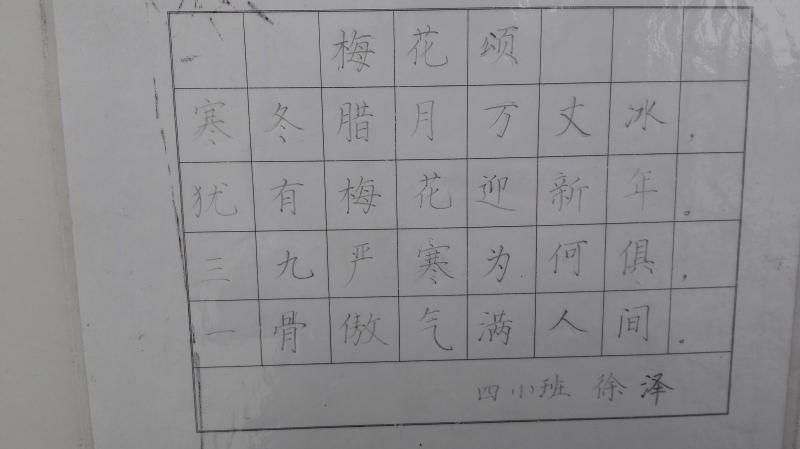 梅花颂
寒冬腊月万丈冰，
犹有梅花迎新年。
三九严寒为何俱，
一骨傲气满人间。
四小班 徐泽